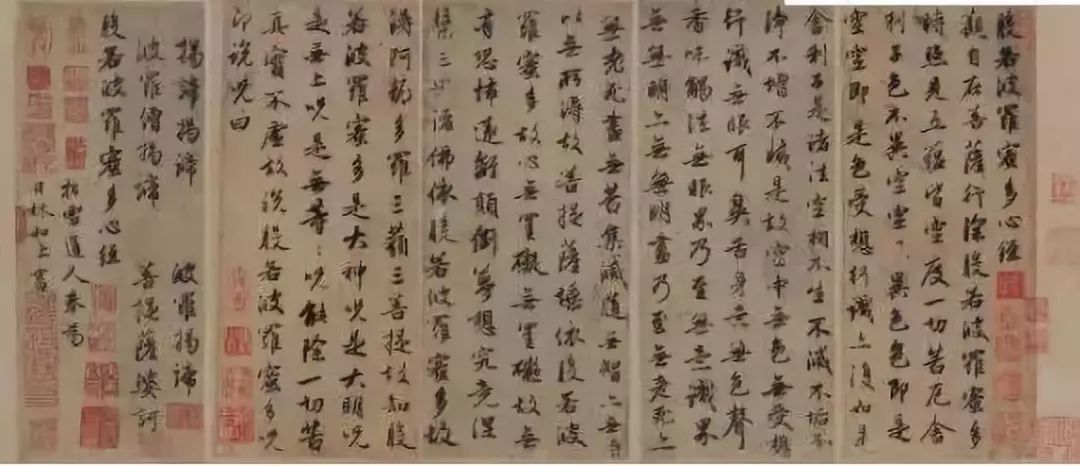 般若波羅蜜多心經
觀自在菩薩行深般若波羅蜜多
時照見五蘊皆空度一切苦厄舍
利子色不異空空、異色色即是
空空即是色受想行識亦復如是
舍利子是諸法空相不生不滅不垢不
淨不增不減是故空中無色無受想
行識無眼耳鼻舌身意無色聲
香味觸法無眼界乃至無意識界
無無明亦無無明盡乃至無老死亦
無老死盡無苦集滅道無智亦無得
以無所得故菩提薩埵依般若波
羅蜜多故心無罣礙無罣礙故無
有恐怖遠離顛倒夢想究竟涅
槃三世諸佛依般若波羅蜜多故
得阿耨多羅三藐三菩提故知般
若波羅蜜多是大神呪是大明呪
是無上呪是無等〻呪能除一切苦
真實不虛故說般若波羅蜜多呪
即說呪曰
揭諦揭諦 波羅揭諦
波羅僧揭諦 菩提薩婆訶
般若波羅蜜多心經
松雪道人奉為
日林和上書